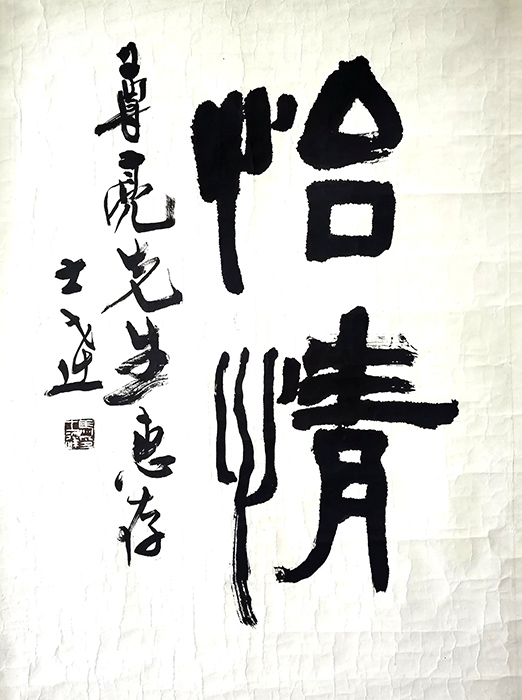 怡情
尊亮先生惠存
士達